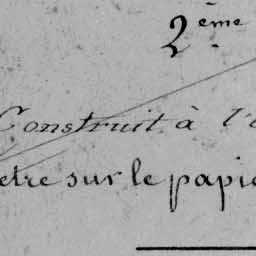 2ème
Construit à l'
etre sur le papie